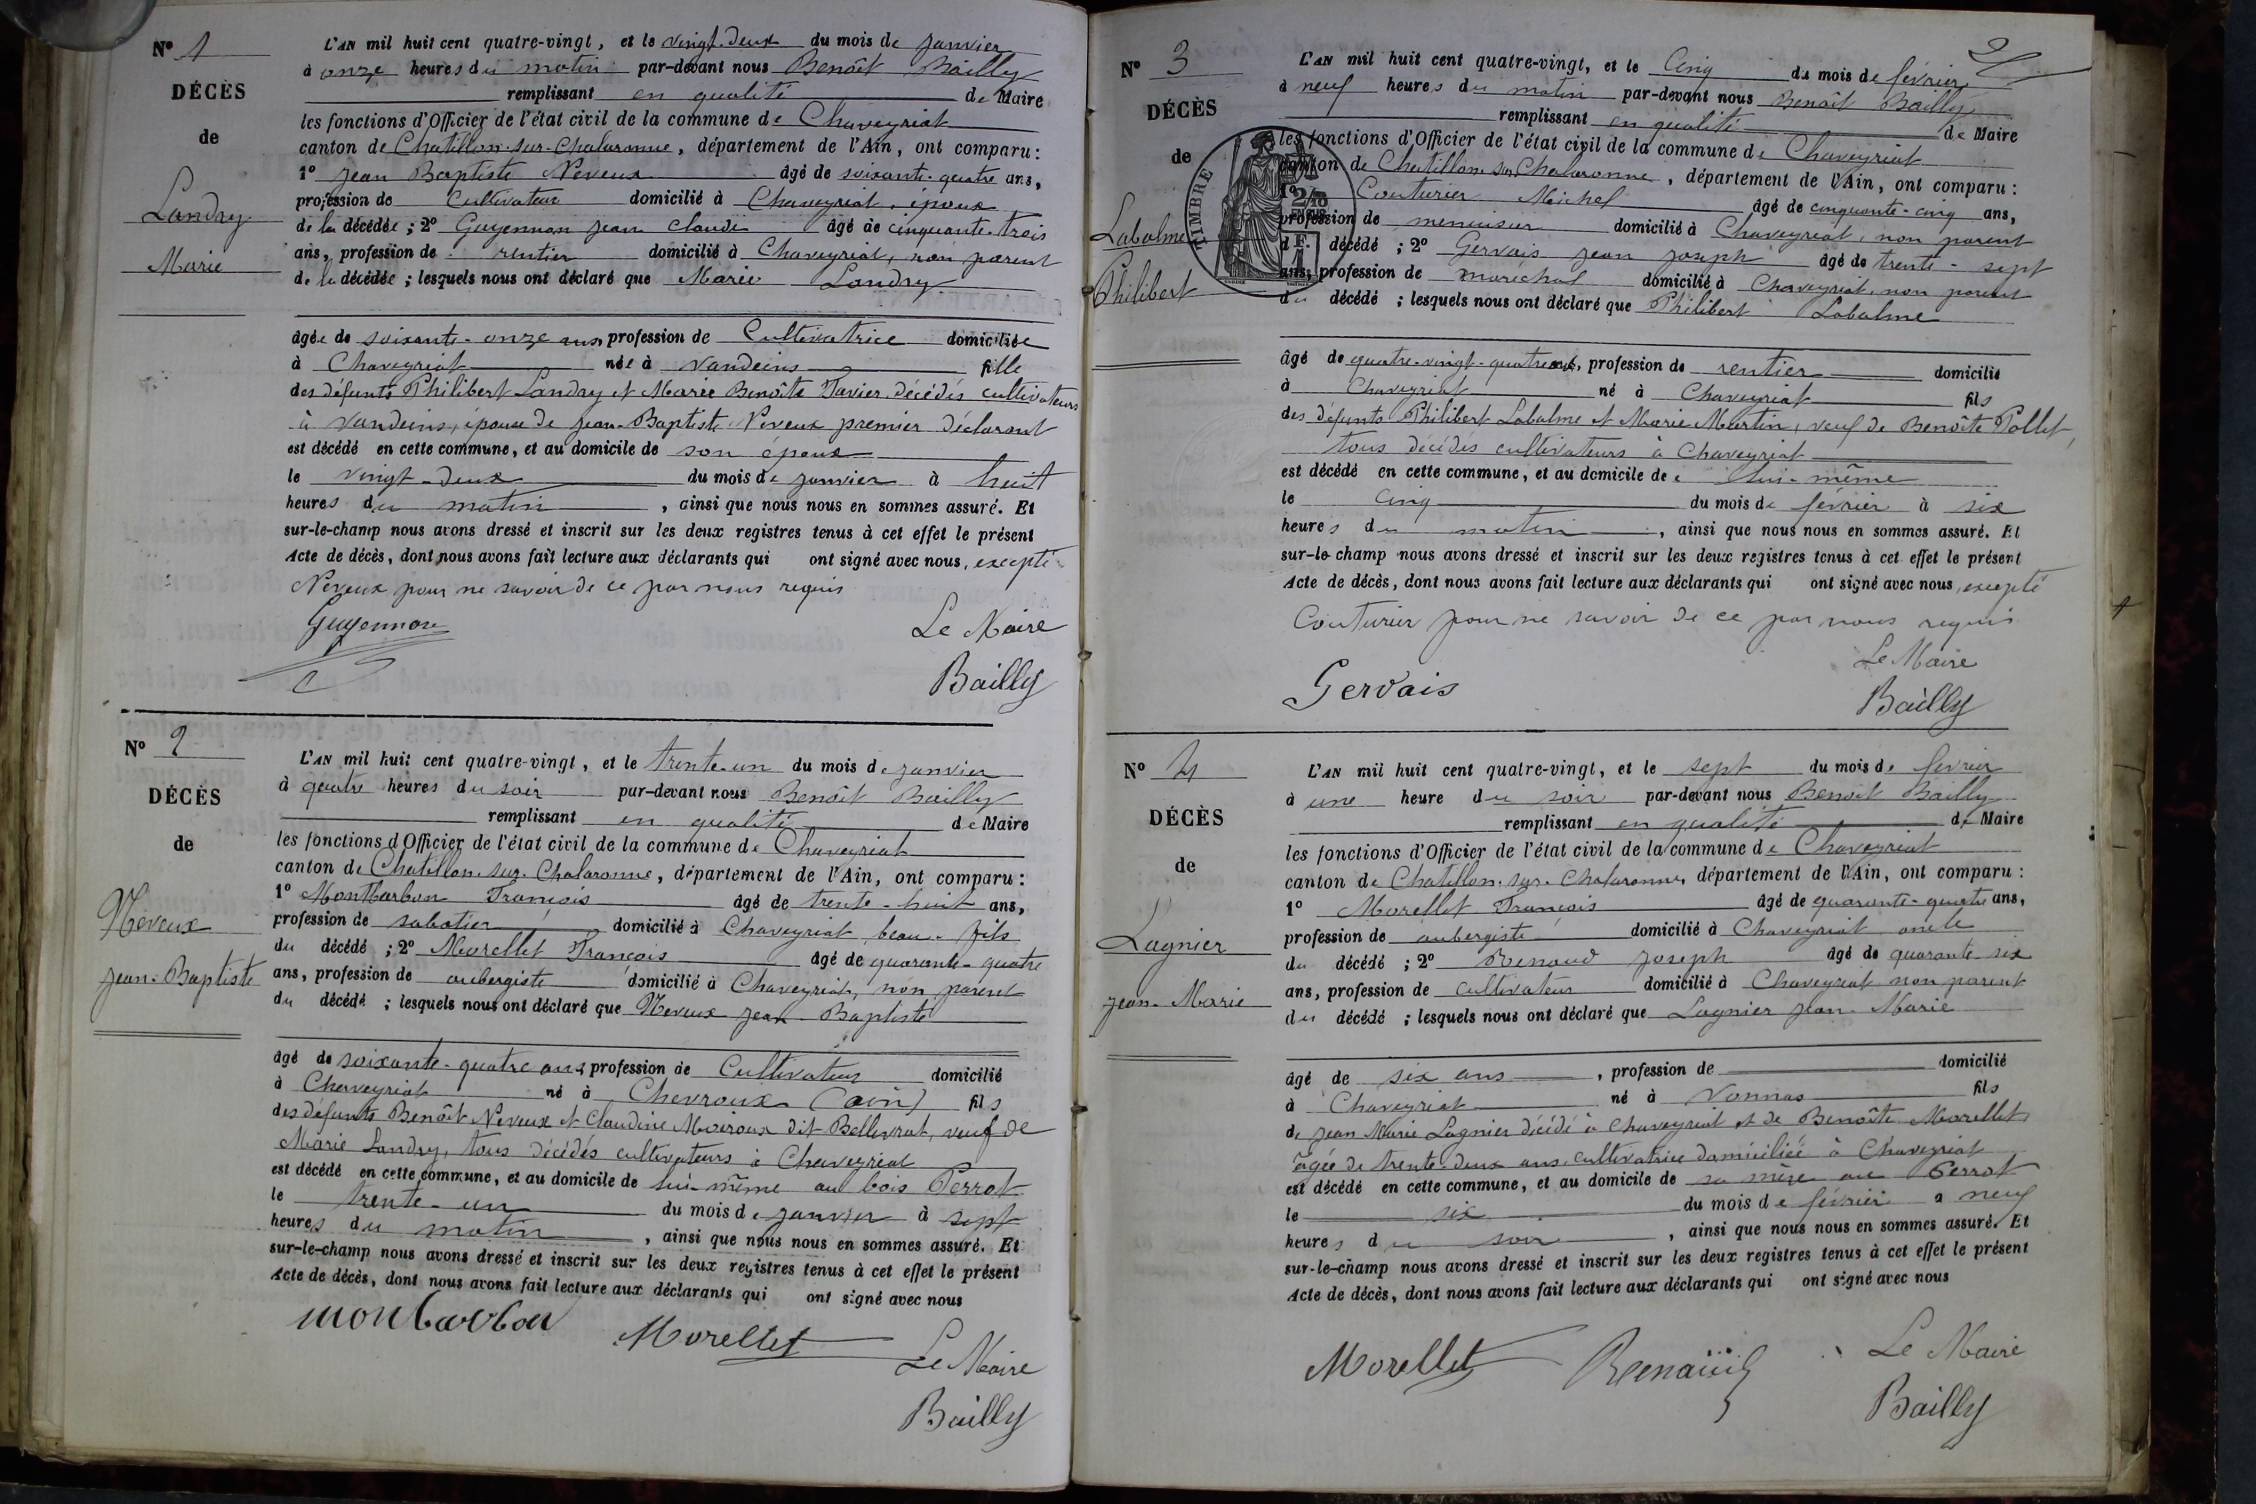 N° 1
DÉCÈS
de
Landry
Marie
L'AN mil huit cent quatre-vingt, et le vingt-deux du mois de janvier
à onze heures du matin par-devant nous Benoît Bailly
remplissant en qualité de Maire
les fonctions d'Officier de l'état civil de la commune de Chaveyriat
canton de Chatillon-sur-Chalaronne, département de l'Ain, ont comparu :
1° Jean Baptiste Neveux âgé de soixante-quatre ans,
profession de Cultivateur domicilié à Chaveyriat, époux
de la décédée ; 2° Guyennon Jean Claude âgé de cinquante-trois
ans, profession de rentier domicilié à Chaveyriat, non parent
de la décédée ; lesquels nous ont déclaré que Marie Landry
âgée de soixante-onze ans, profession de Cultivatrice domiciliée
à Chaveyriat née à Vandeins fille
des défunts Philibert Landry et Marie Benoîte Tavier, décédés cultivateurs
à Vandeins, épouse de Jean-Baptiste Neveux premier déclarant
est décédé en cette commune, et au domicile de son époux
le vingt-deux du mois de janvier à huit
heures du matin, ainsi que nous nous en sommes assuré. Et
sur-le-champ nous avons dressé et inscrit sur les deux registres tenus à cet effet le présent
Acte de décès, dont nous avons fait lecture aux déclarants qui ont signé avec nous, excepté
Neveux pour ne savoir de ce par nous requis
Guyennon
Le Maire
Bailly
N° 2
DÉCÈS
de
Neveux
Jean-Baptiste
L'AN mil huit cent quatre-vingt, et le trente-un du mois de janvier
à quatre heures du soir par-devant nous Benoît Bailly
remplissant en qualité de Maire
les fonctions d'Officier de l'état civil de la commune de Chaveyriat
canton de Chatillon-sur-Chalaronne, département de l'Ain, ont comparu :
1° Montbarbon François âgé de trente-huit ans,
profession de sabotier domicilié à Chaveyriat, beau-fils
du décédé ; 2° Morellet François âgé de quarante-quatre
ans, profession de aubergiste domicilié à Chaveyriat, non parent
du décédé ; lesquels nous ont déclaré que Neveux Jean-Baptiste
âgé de soixante-quatre ans profession de Cultivateur domicilié
à Chaveyriat né à Chevroux (ain) fils
des défunts Benoît Neveux et Claudine Moiroux dit Bellevrat, veuf de
Marie Landry, tous décédés cultivateurs à Chaveyriat
est décédé en cette commune, et au domicile de lui-même au bois Perrot
le trente-un du mois de janvier à sept
heures du matin, ainsi que nous nous en sommes assuré. Et
sur-le-champ nous avons dressé et inscrit sur les deux registres tenus à cet effet le présent
Acte de décès, dont nous avons fait lecture aux déclarants qui ont signé avec nous
montbarbon
Morellet
Le Maire
Bailly
2
N° 3
DÉCÈS
de
Labalme
Philibert
TIMBRE
L'AN mil huit cent quatre-vingt, et le Cinq du mois de février
à neuf heures du matin par-devant nous Benoît Bailly
remplissant en qualité de Maire
les fonctions d'Officier de l'état civil de la commune de Chaveyriat
canton de Chatillon sur Chalaronne, département de l'Ain, ont comparu :
1° Couturier Michel âgé de cinquante-cinq ans,
profession de menuisier domicilié à Chaveyriat, non parent
d décédé ; 2° Gervais Jean Joseph âgé de trente-sept
ans, profession de maréchal domicilié à Chaveyriat, non parent
du décédé ; lesquels nous ont déclaré que Philibert Labalme
âgé de quatre-vingt-quatre ans, profession de rentier domicilié
à Chaveyriat né à Chaveyriat fils
des défunts Philibert Labalme et Marie Martin, veuf de Benoîte Pollet,
tous décédés cultivateurs à Chaveyriat
est décédé en cette commune, et au domicile de lui-même
le cinq du mois de février à six
heures du matin, ainsi que nous nous en sommes assuré. Et
sur-le-champ nous avons dressé et inscrit sur les deux registres tenus à cet effet le présent
Acte de décès, dont nous avons fait lecture aux déclarants qui ont signé avec nous, excepté
Couturier pour ne savoir de ce par nous requis
Gervais
Le Maire
Bailly
N° 4
DÉCÈS
de
Lagnier
Jean-Marie
L'AN mil huit cent quatre-vingt, et le sept du mois de février
à une heure du soir par-devant nous Benoît Bailly
remplissant en qualité de Maire
les fonctions d'Officier de l'état civil de la commune de Chaveyriat
canton de Chatillon-sur-Chalaronne, département de l'Ain, ont comparu :
1° Morellet François âgé de quarante-quatre ans,
profession de aubergiste domicilié à Chaveyriat oncle
du décédé ; 2° Renaud Joseph âgé de quarante-six
ans, profession de cultivateur domicilié à Chaveyriat non parent
du décédé ; lesquels nous ont déclaré que Lagnier Jean-Marie
âgé de six ans, profession de domicilié
à Chaveyriat né à Vonnas fils
de Jean Marie Lagnier décédé à Chaveyriat et de Benoîte Morellet,
âgée de trente-deux ans, cultivatrice domiciliée à Chaveyriat
est décédé en cette commune, et au domicile de sa mère au Perrot
le six du mois de février à neuf
heures du soir, ainsi que nous nous en sommes assuré. Et
sur-le-champ nous avons dressé et inscrit sur les deux registres tenus à cet effet le présent
Acte de décès, dont nous avons fait lecture aux déclarants qui ont signé avec nous
Morellet
Renaud
Le Maire
Bailly